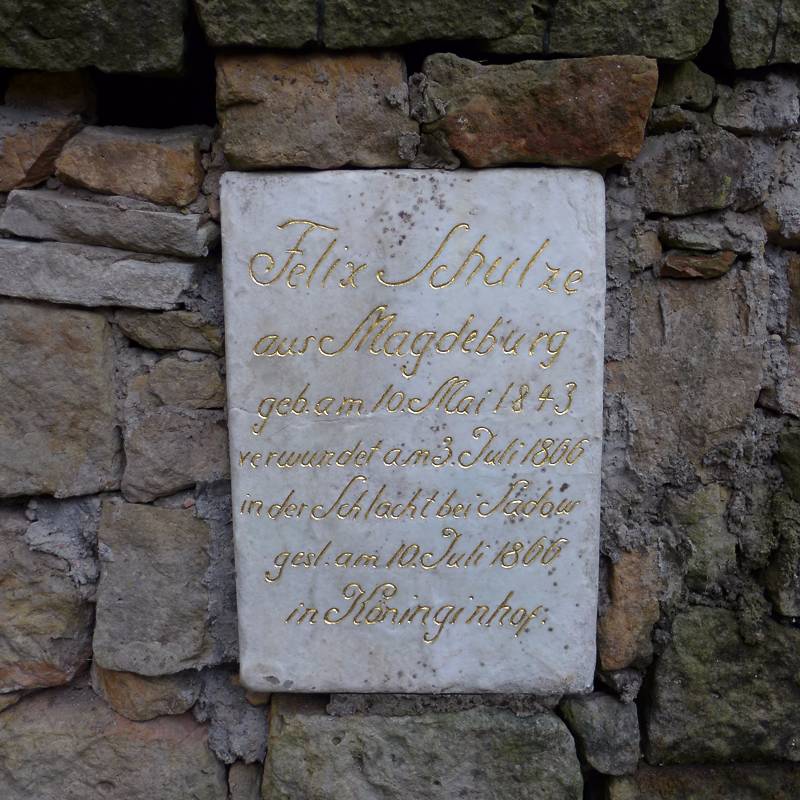 Felix Schulze
aus Magdeburg
geb. am 10. Mai 1843.
verwundet am 3. Juli 1866
in der Schlacht bei Sadowr
gesl. am 10. Juli 1866
in Köninginhof.